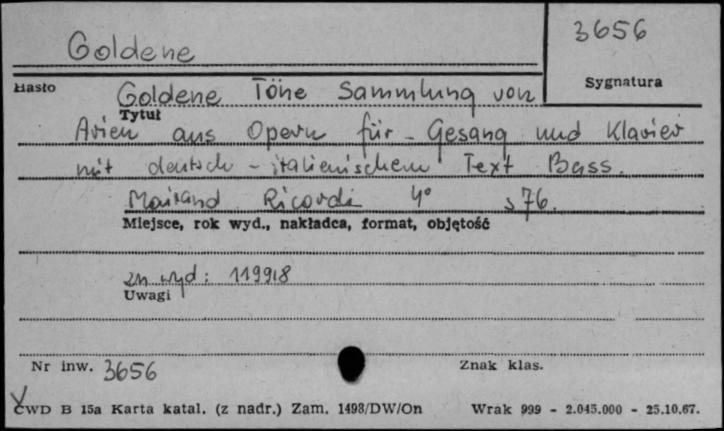 Goldene
3656
Hasło
Sygnatura
Goldene Töne Sammlung von
Tytuł
Arien aus Opern für - Gesang und Klavier
mit deutsch - italienischem Text Bass.
Mailand Ricordi 4° s 76.
Miejsce, rok wyd., nakładca, format, objętość
zn wyd: 119918
Uwagi
Nr inw. 3656
Znak klas.
CWD B 15a Karta katal. (z nadr.) Zam. 1498/DW/On Wrak 999 - 2.045.000 - 25.10.67.